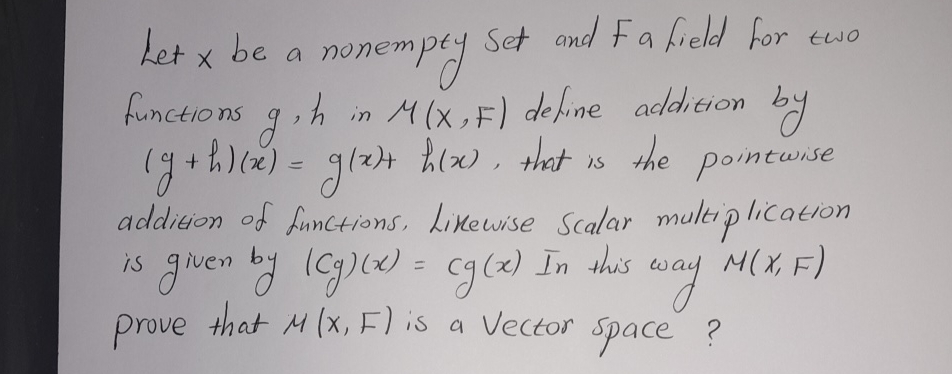 Let x be a nonempty set and F a field for two
functions g, h in M(X, F) define addition by
(g + h)(x) = g(x)+ h(x), that is the pointwise
addition of functions. Likewise Scalar multiplication
is given by (Cg)(x) = cg(x) In this way M(X, F)
prove that M(X, F) is a Vector space ?